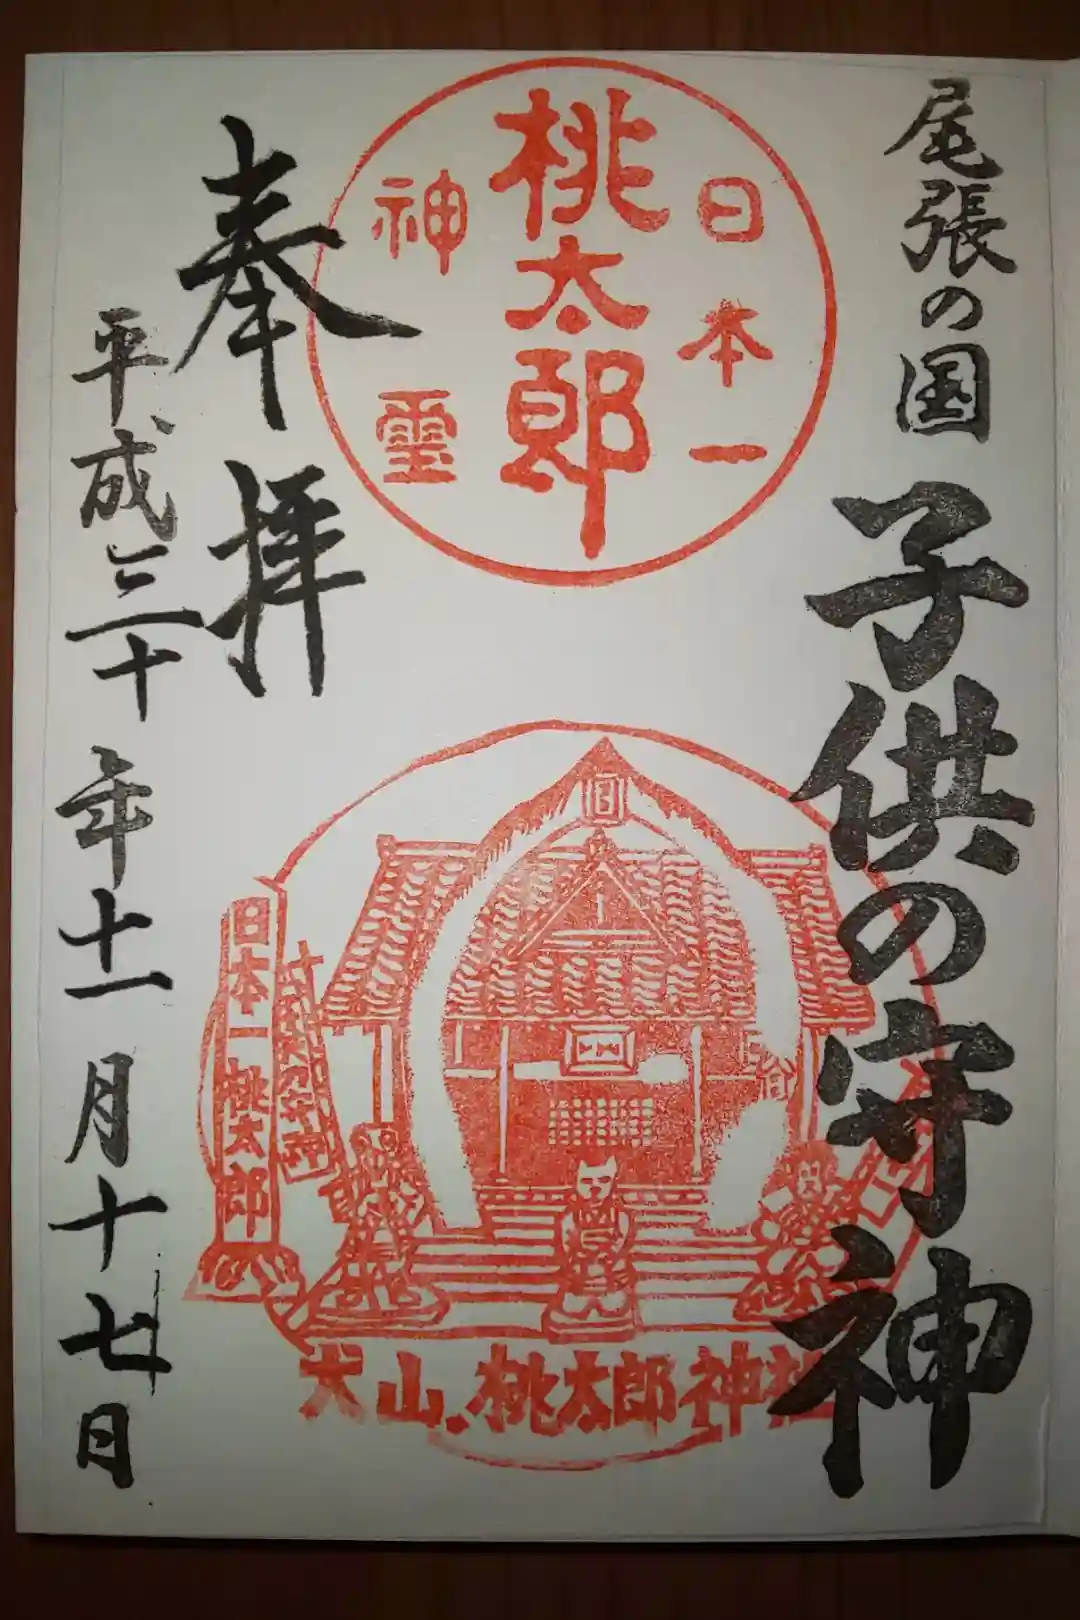 尾張の国
子供の守神
日本一
桃太郎
神霊
奉拝
平成三十年十一月十七日
日本一桃太郎
犬山.桃太郎神社